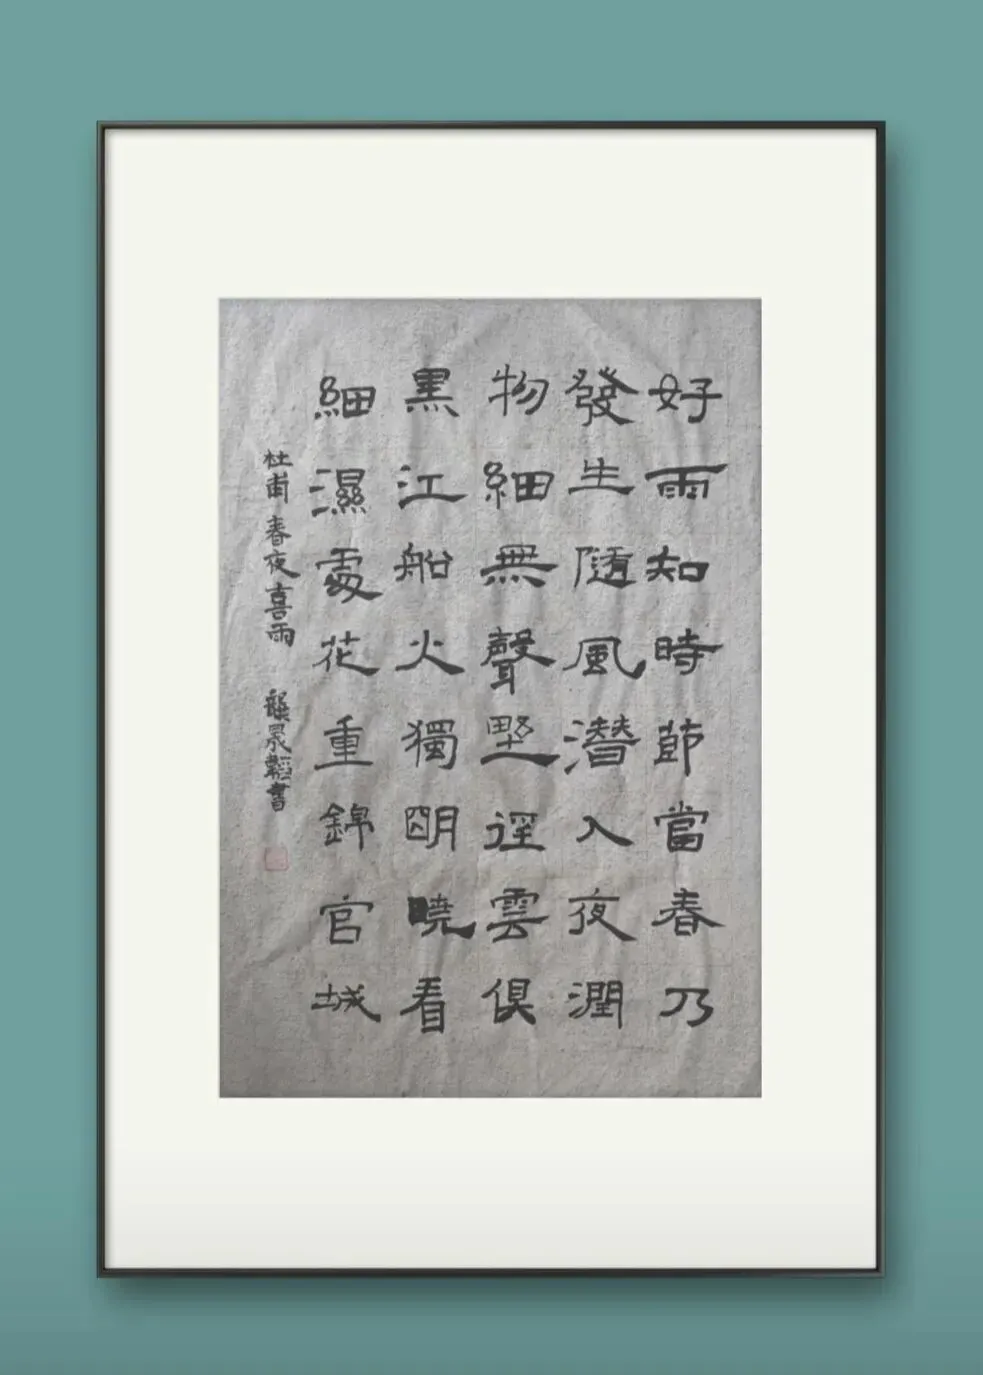 好雨知時節當春乃
發生隨風潛入夜潤
物細無聲野徑雲俱
黑江船火獨明曉看
細濕處花重錦官城
杜甫春夜喜雨 龔晟韜書